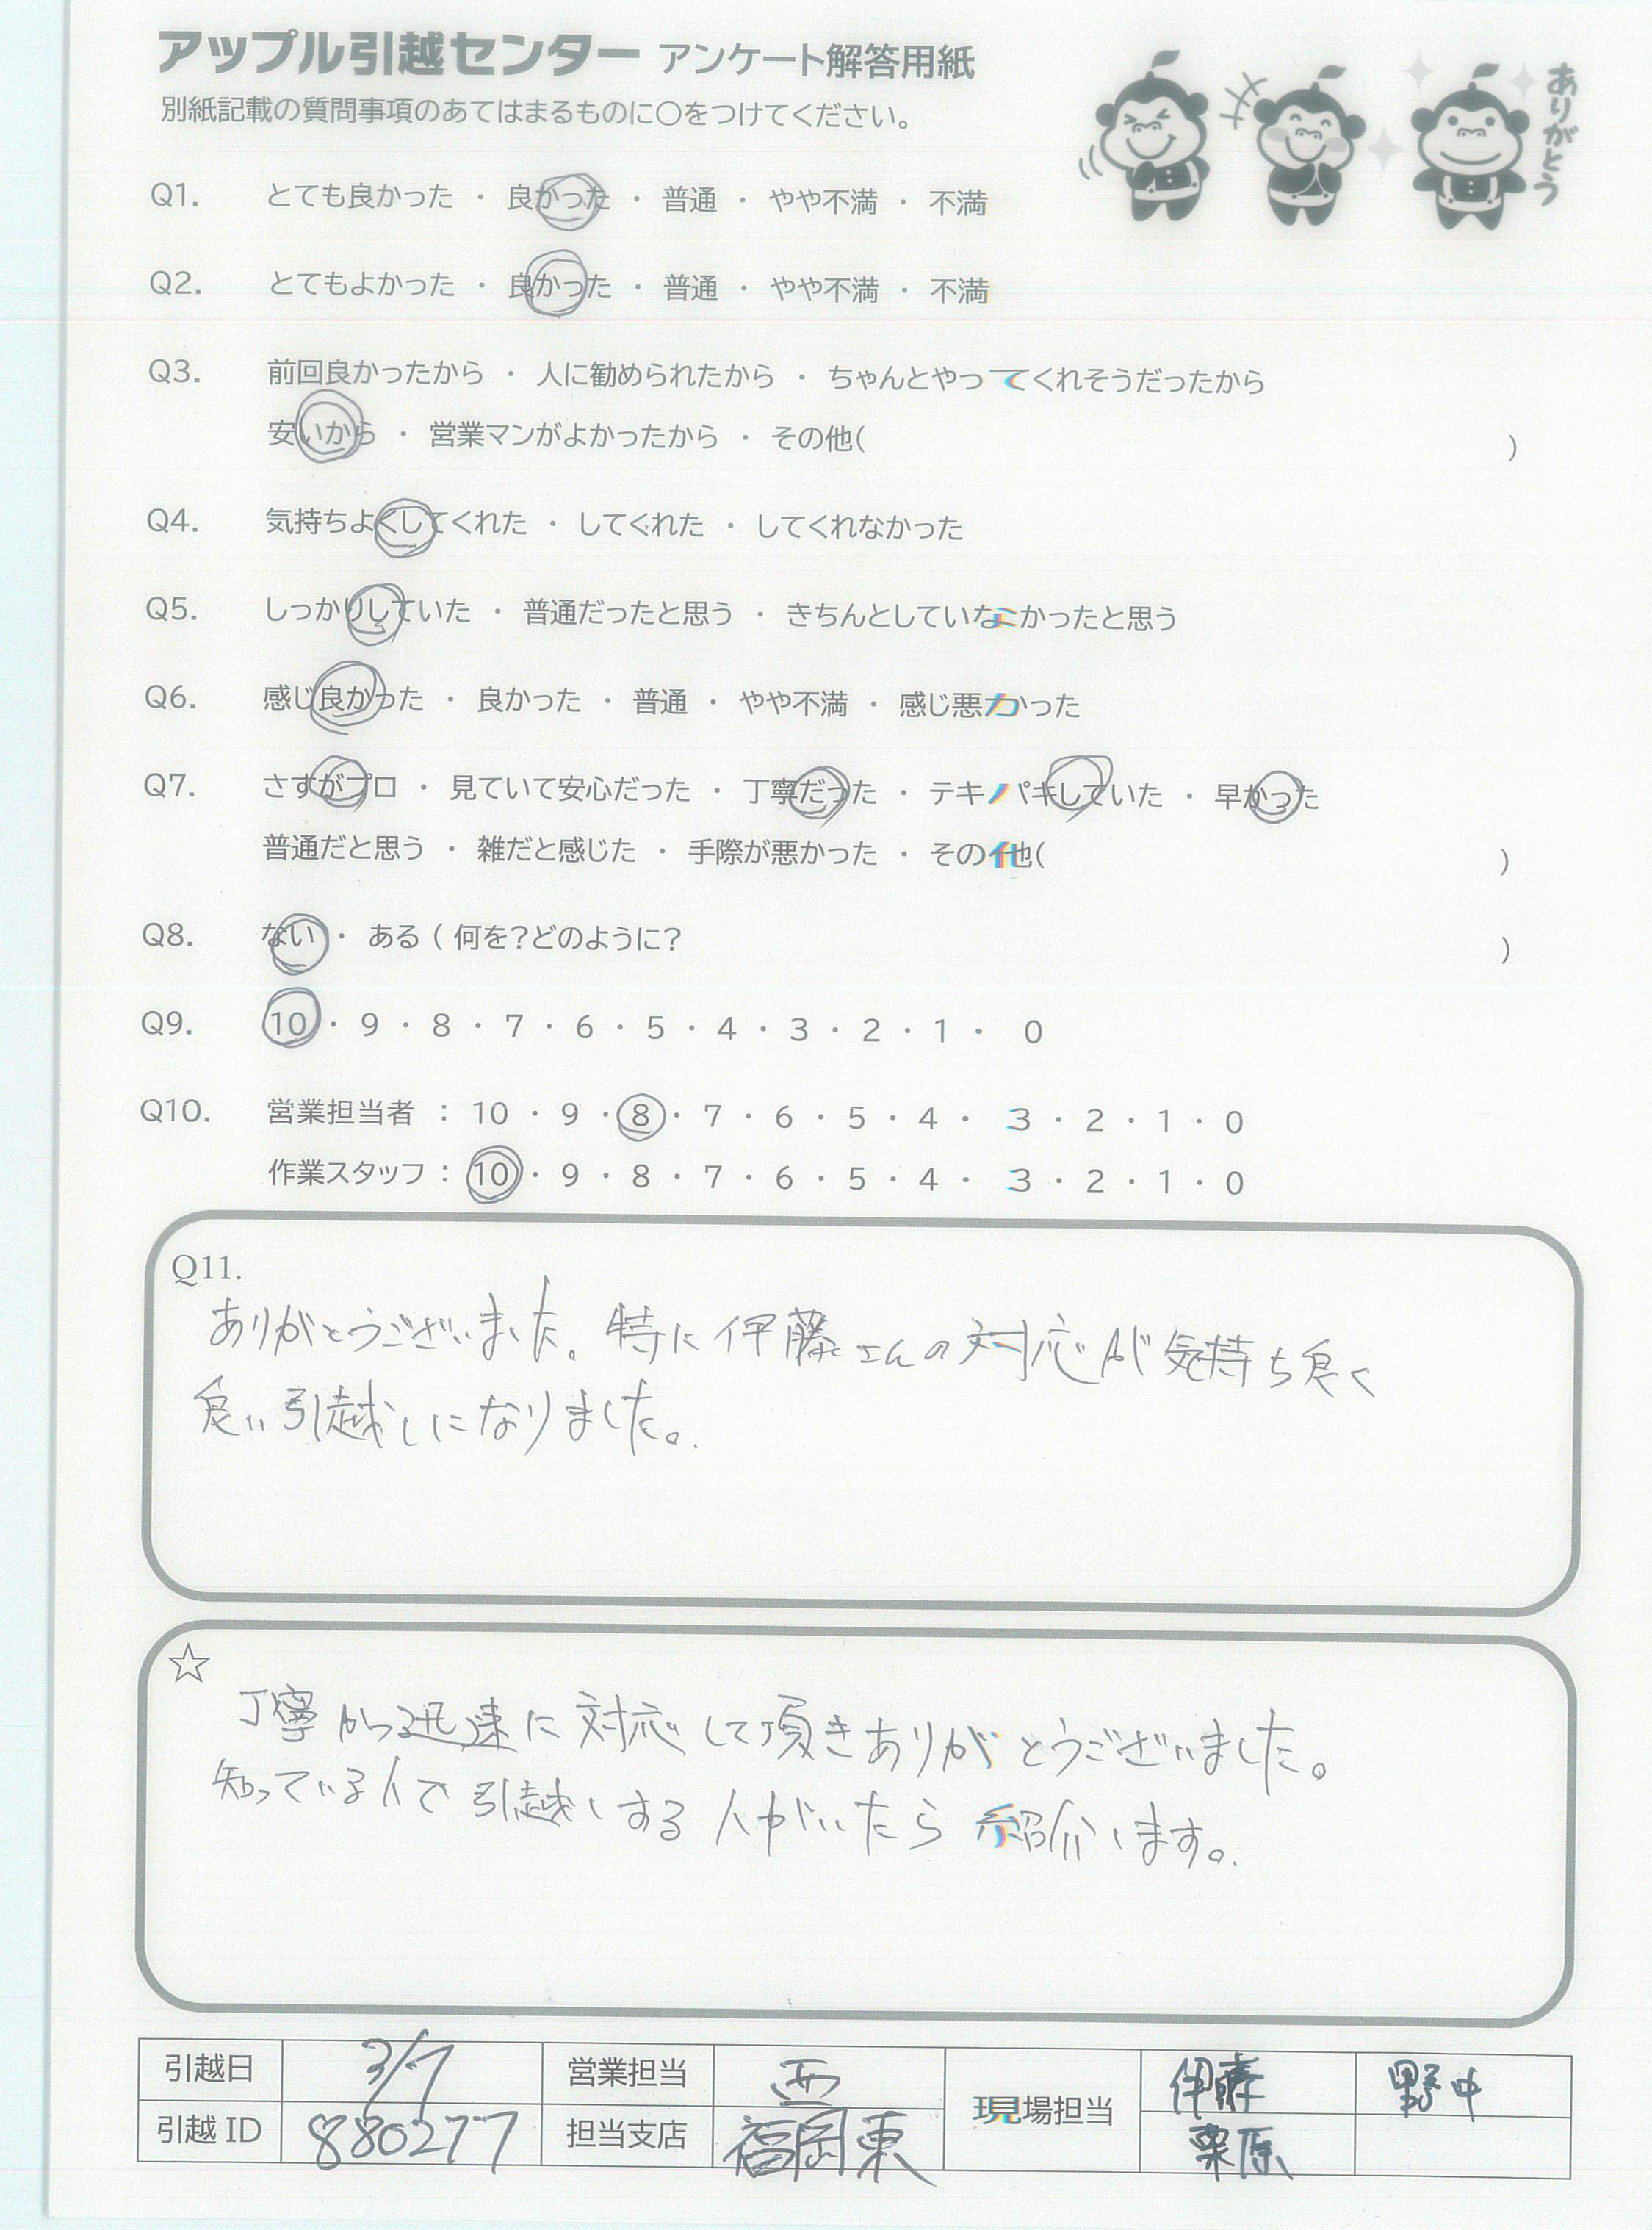 アップル引越センター アンケート解答用紙
別紙記載の質問事項のあてはまるものに○をつけてください。
ありがとう
Q1. とても良かった ・ 良かった ・ 普通 ・ やや不満 ・ 不満
Q2. とてもよかった ・ 良かった ・ 普通 ・ やや不満 ・ 不満
Q3. 前回良かったから ・ 人に勧められたから ・ ちゃんとやってくれそうだったから
安いから ・ 営業マンがよかったから ・ その他( )
Q4. 気持ちよくしてくれた ・ してくれた ・ してくれなかった
Q5. しっかりしていた ・ 普通だったと思う ・ きちんとしていなかったと思う
Q6. 感じ良かった ・ 良かった ・ 普通 ・ やや不満 ・ 感じ悪かった
Q7. さすがプロ ・ 見ていて安心だった ・ 丁寧だった ・ テキパキしていた ・ 早かった
普通だと思う ・ 雑だと感じた ・ 手際が悪かった ・ その他( )
Q8. ない ・ ある ( 何を?どのように? )
Q9. 10 ・ 9 ・ 8 ・ 7 ・ 6 ・ 5 ・ 4 ・ 3 ・ 2 ・ 1 ・ 0
Q10. 営業担当者 : 10 ・ 9 ・ 8 ・ 7 ・ 6 ・ 5 ・ 4 ・ 3 ・ 2 ・ 1 ・ 0
作業スタッフ : 10 ・ 9 ・ 8 ・ 7 ・ 6 ・ 5 ・ 4 ・ 3 ・ 2 ・ 1 ・ 0
Q11.
ありがとうございました。特に伊藤さんの対応が気持ち良く
良い引越しになりました。
☆
丁寧かつ迅速に対応して頂きありがとうございました。
知っている人で引越しする人がいたら紹介します。
引越日 3/7 営業担当 西 現場担当 伊藤 野中
引越ID 880277 担当支店 福岡東 栗原